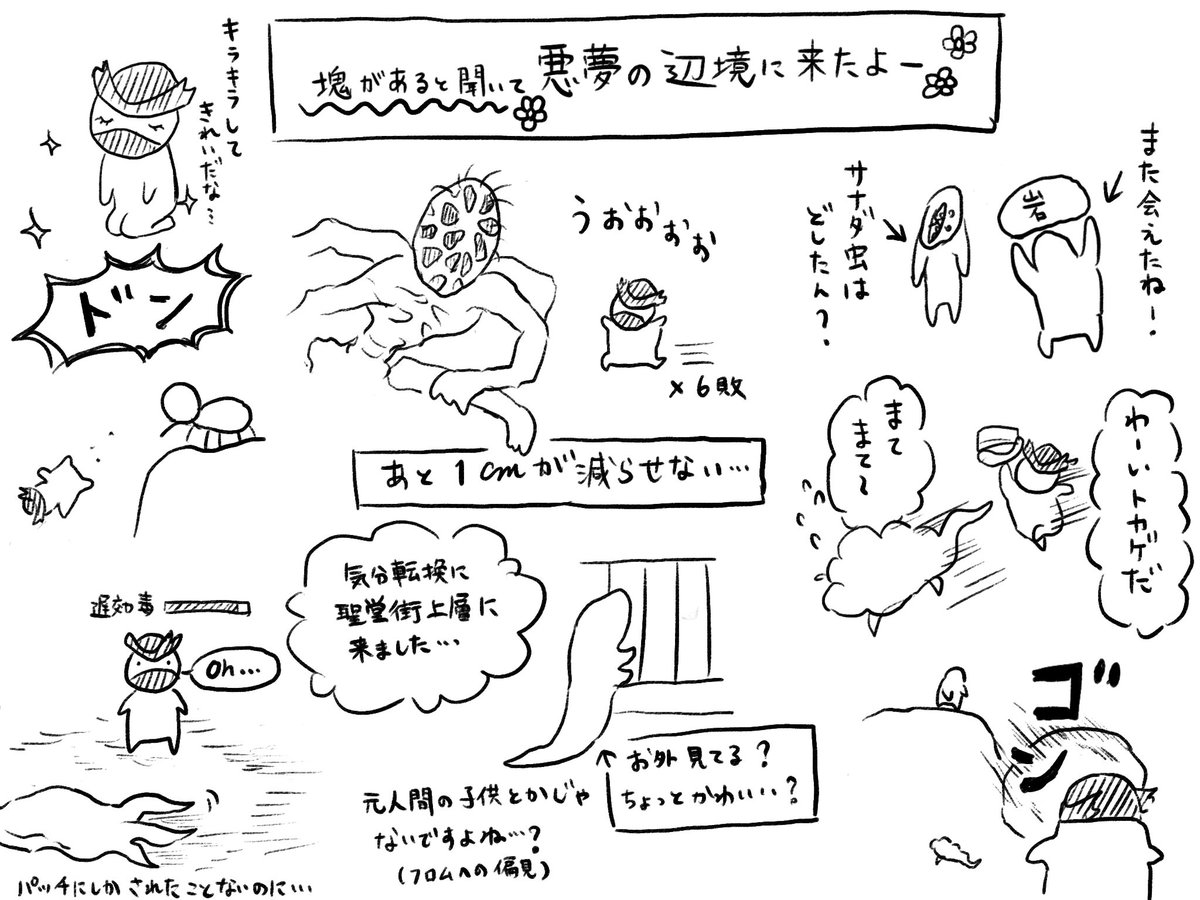 塊があると聞いて悪夢の辺境に来たよー
また会えたねー!
岩
サナダ虫は
どしたん?
わーいトカゲだ
まて
まて〜
ゴ
ン
うおおおお
×6敗
あと1cmが減らせない…
キラキラして
きれいだな…
ドン
遅効毒
oh…
パッチにしかされたことないのに…
気分転換に
聖堂街上層に
来ました…
お外見てる?
ちょっとかわいい?
元人間の子供とかじゃ
ないですよね…?
(フロムへの偏見)